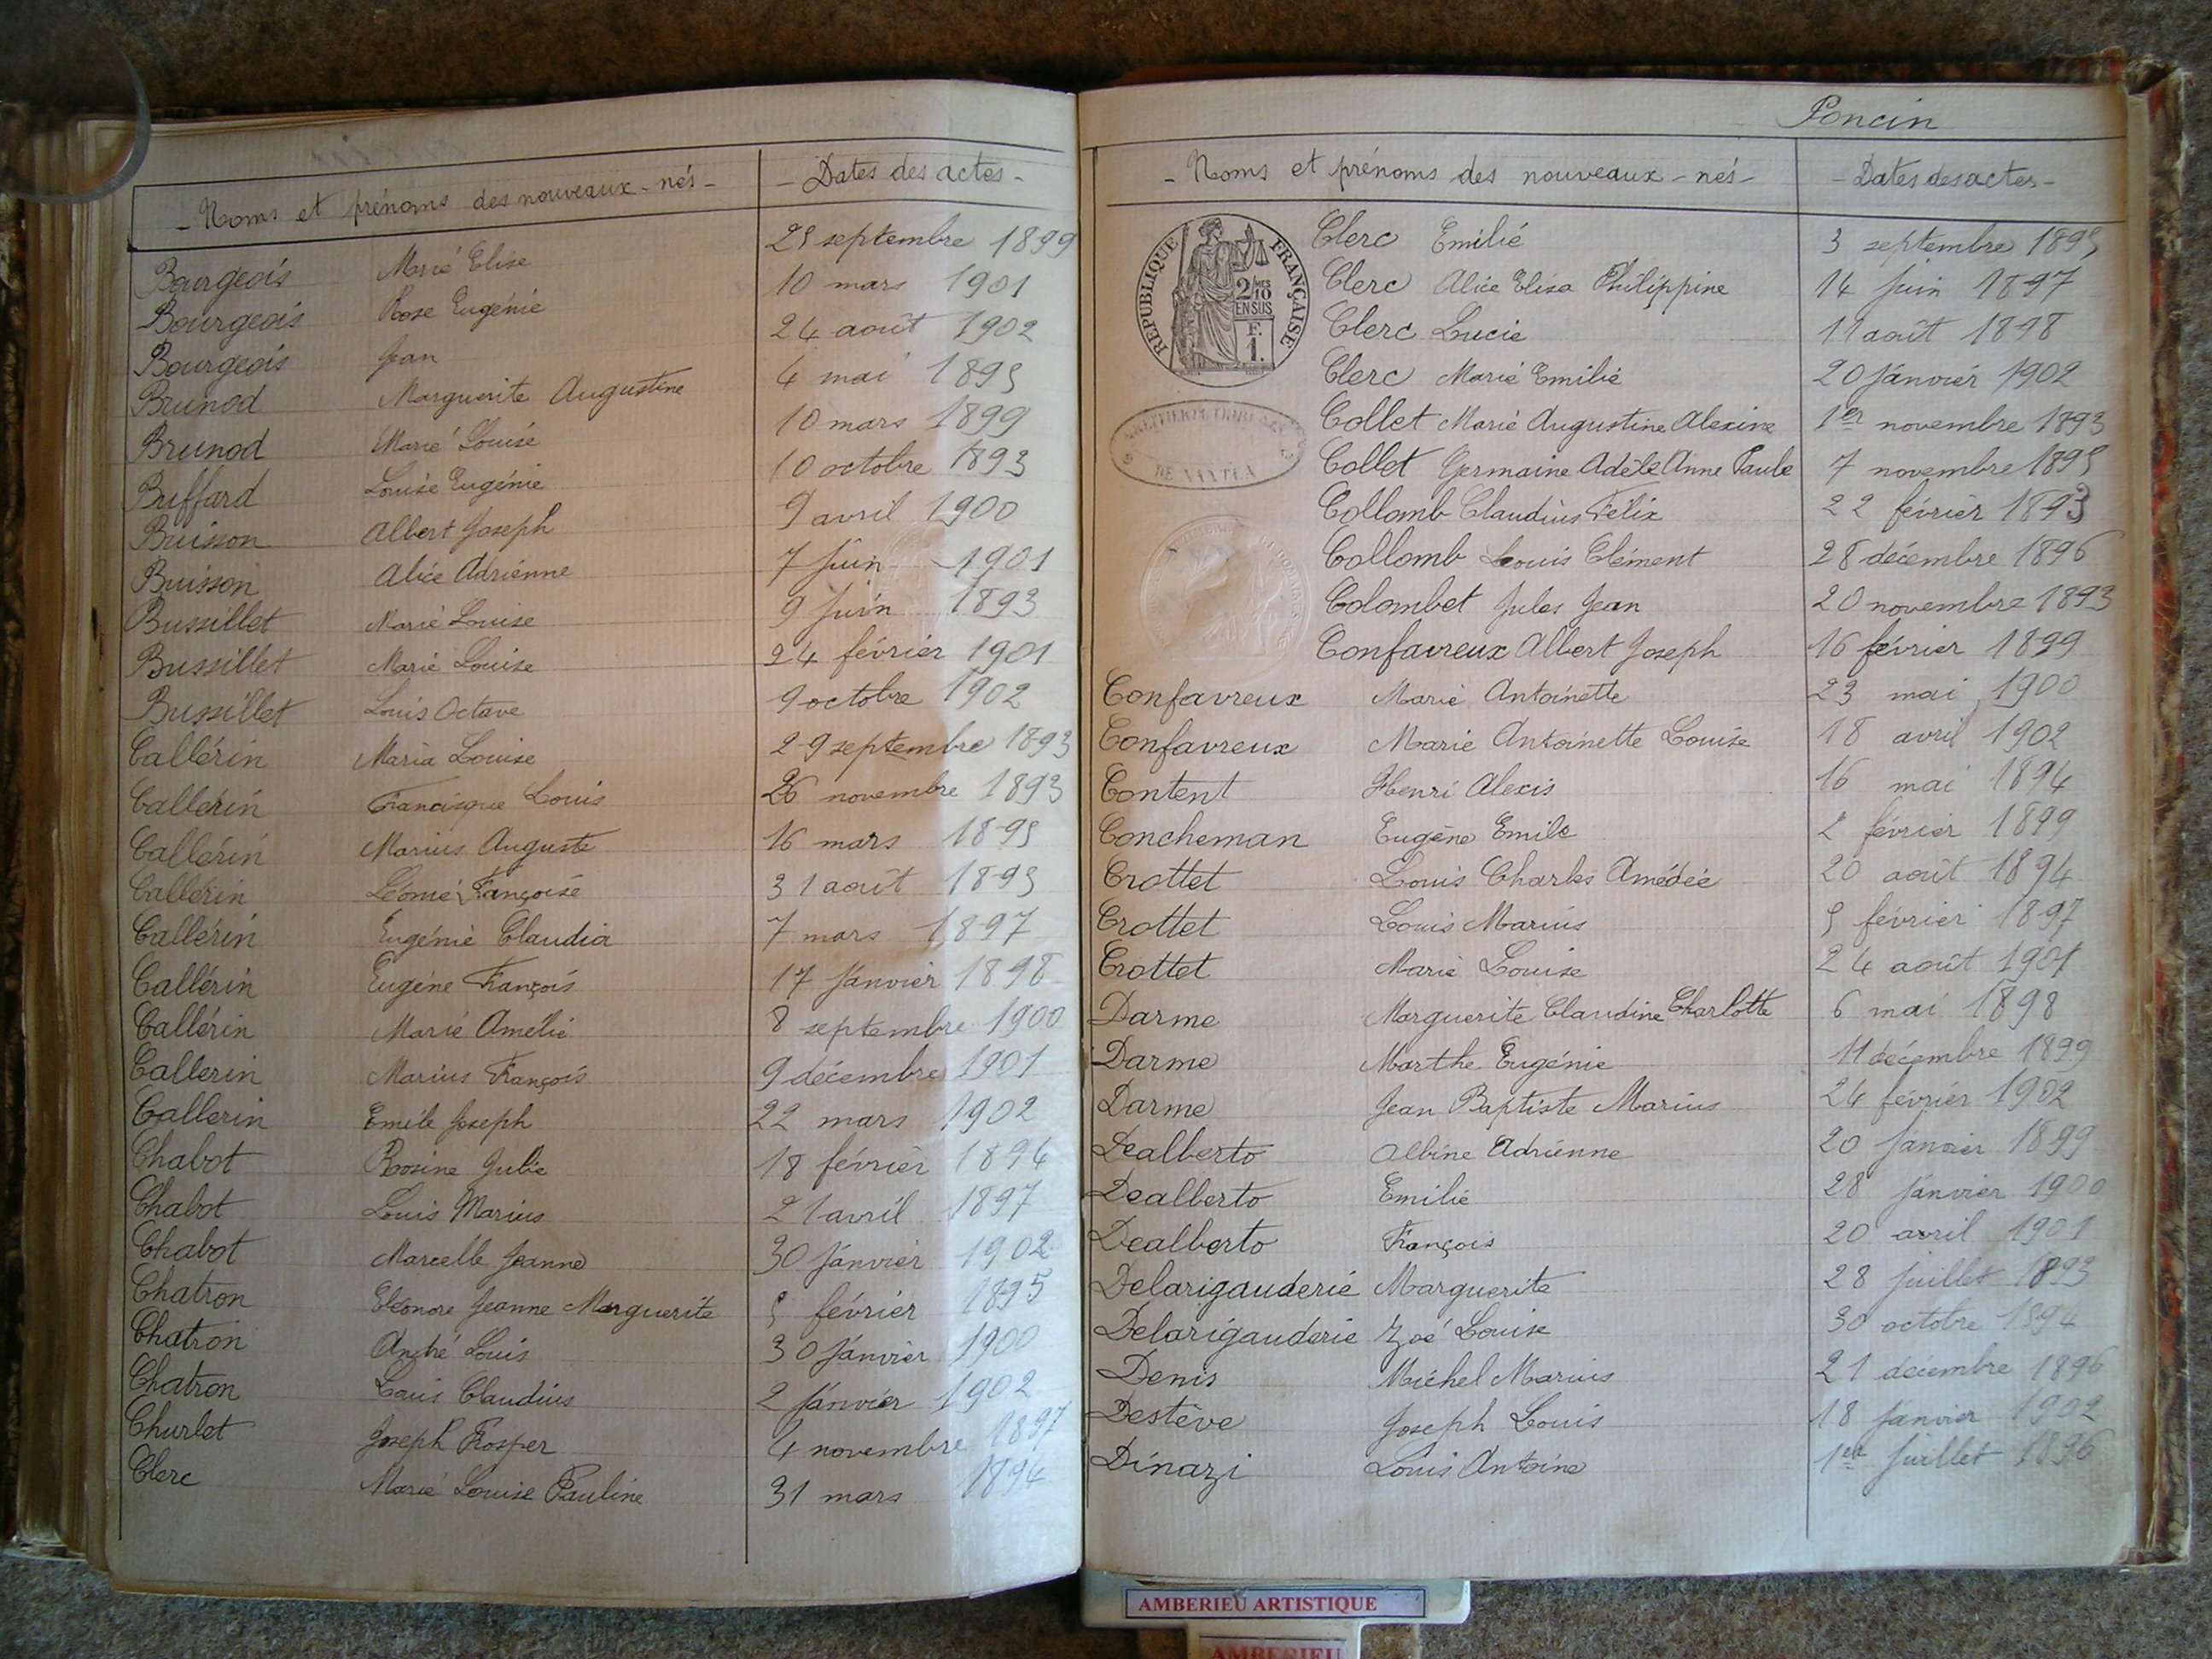 - Noms et prénoms des nouveaux-nés - - Dates des actes -
Bourgeois Marie Elise 25 septembre 1899
Bourgeois Rose Eugénie 10 mars 1901
Bourgeois Jean 24 août 1902
Brunod Marguerite Augustine 4 mai 1895
Brunod Marie Louise 10 mars 1899
Buffard Louise Eugénie 10 octobre 1893
Buisson Albert Joseph 9 avril 1900
Buisson Alice Adrienne 7 Juin 1901
Bussillet Marie Louise 9 Juin 1893
Bussillet Marie Louise 24 février 1901
Bussillet Louis Octave 9 octobre 1902
Callérin Maria Louise 29 septembre 1893
Callerin Francisque Louis 26 novembre 1893
Callérin Marius Auguste 16 mars 1895
Callerin Léonie Françoise 31 août 1895
Callérin Eugénie Claudia 7 mars 1897
Callérin Eugène François 17 Janvier 1898
Callérin Marie Amélie 8 septembre 1900
Callerin Marius François 9 décembre 1901
Callerin Emile Joseph 22 mars 1902
Chabot Rosine Julie 18 février 1894
Chabot Louis Marius 21 avril 1897
Chabot Marcelle Jeanne 30 Janvier 1902
Chatron Eléonore Jeanne Marguerite 5 février 1895
Chatron André Louis 30 Janvier 1900
Chatron Louis Claudius 2 Janvier 1902
Churlet Joseph Prosper 4 novembre 1897
Clerc Marie Louise Pauline 31 mars 1894
Poncin
- Noms et prénoms des nouveaux-nés - - Dates des actes -
RÉPUBLIQUE FRANÇAISE
2/10MES
EN SUS
F.
1.
Clerc Emilie 3 septembre 1895
Clerc Alice Elisa Philippine 14 Juin 1897
Clerc Lucie 11 août 1898
Clerc Marie Emilie 20 Janvier 1902
Collet Marie Augustine Alexine 1er novembre 1893
Collet Germaine Adèle Anne Paule 7 novembre 1895
DE NANTUA
Collomb Claudius Félix 22 février 1893
Collomb Louis Clément 28 décembre 1896
Colombet Jules Jean 20 novembre 1893
Confavreux Albert Joseph 16 février 1899
Confavreux Marie Antoinette 23 mai 1900
Confavreux Marie Antoinette Louise 18 avril 1902
Content Henri Alexis 16 mai 1894
Concheman Eugène Emile 2 février 1899
Crottet Louis Charles Amédée 20 août 1894
Crottet Louis Marius 5 février 1897
Crottet Marie Louise 24 août 1901
Darme Marguerite Claudine Charlotte 6 mai 1898
Darme Marthe Eugénie 11 décembre 1899
Darme Jean Baptiste Marius 24 février 1902
Dealberto Albine Adrienne 20 Janvier 1899
Dealberto Emilie 28 Janvier 1900
Dealberto François 20 avril 1901
Delarigauderie Marguerite 28 Juillet 1893
Delarigauderie Zoé Louise 30 octobre 1894
Denis Michel Marius 21 décembre 1896
Destève Joseph Louis 18 Janvier 1902
Dinazi Louis Antoine 1er Juillet 1896
AMBERIEU ARTISTIQUE
AMBERIEU